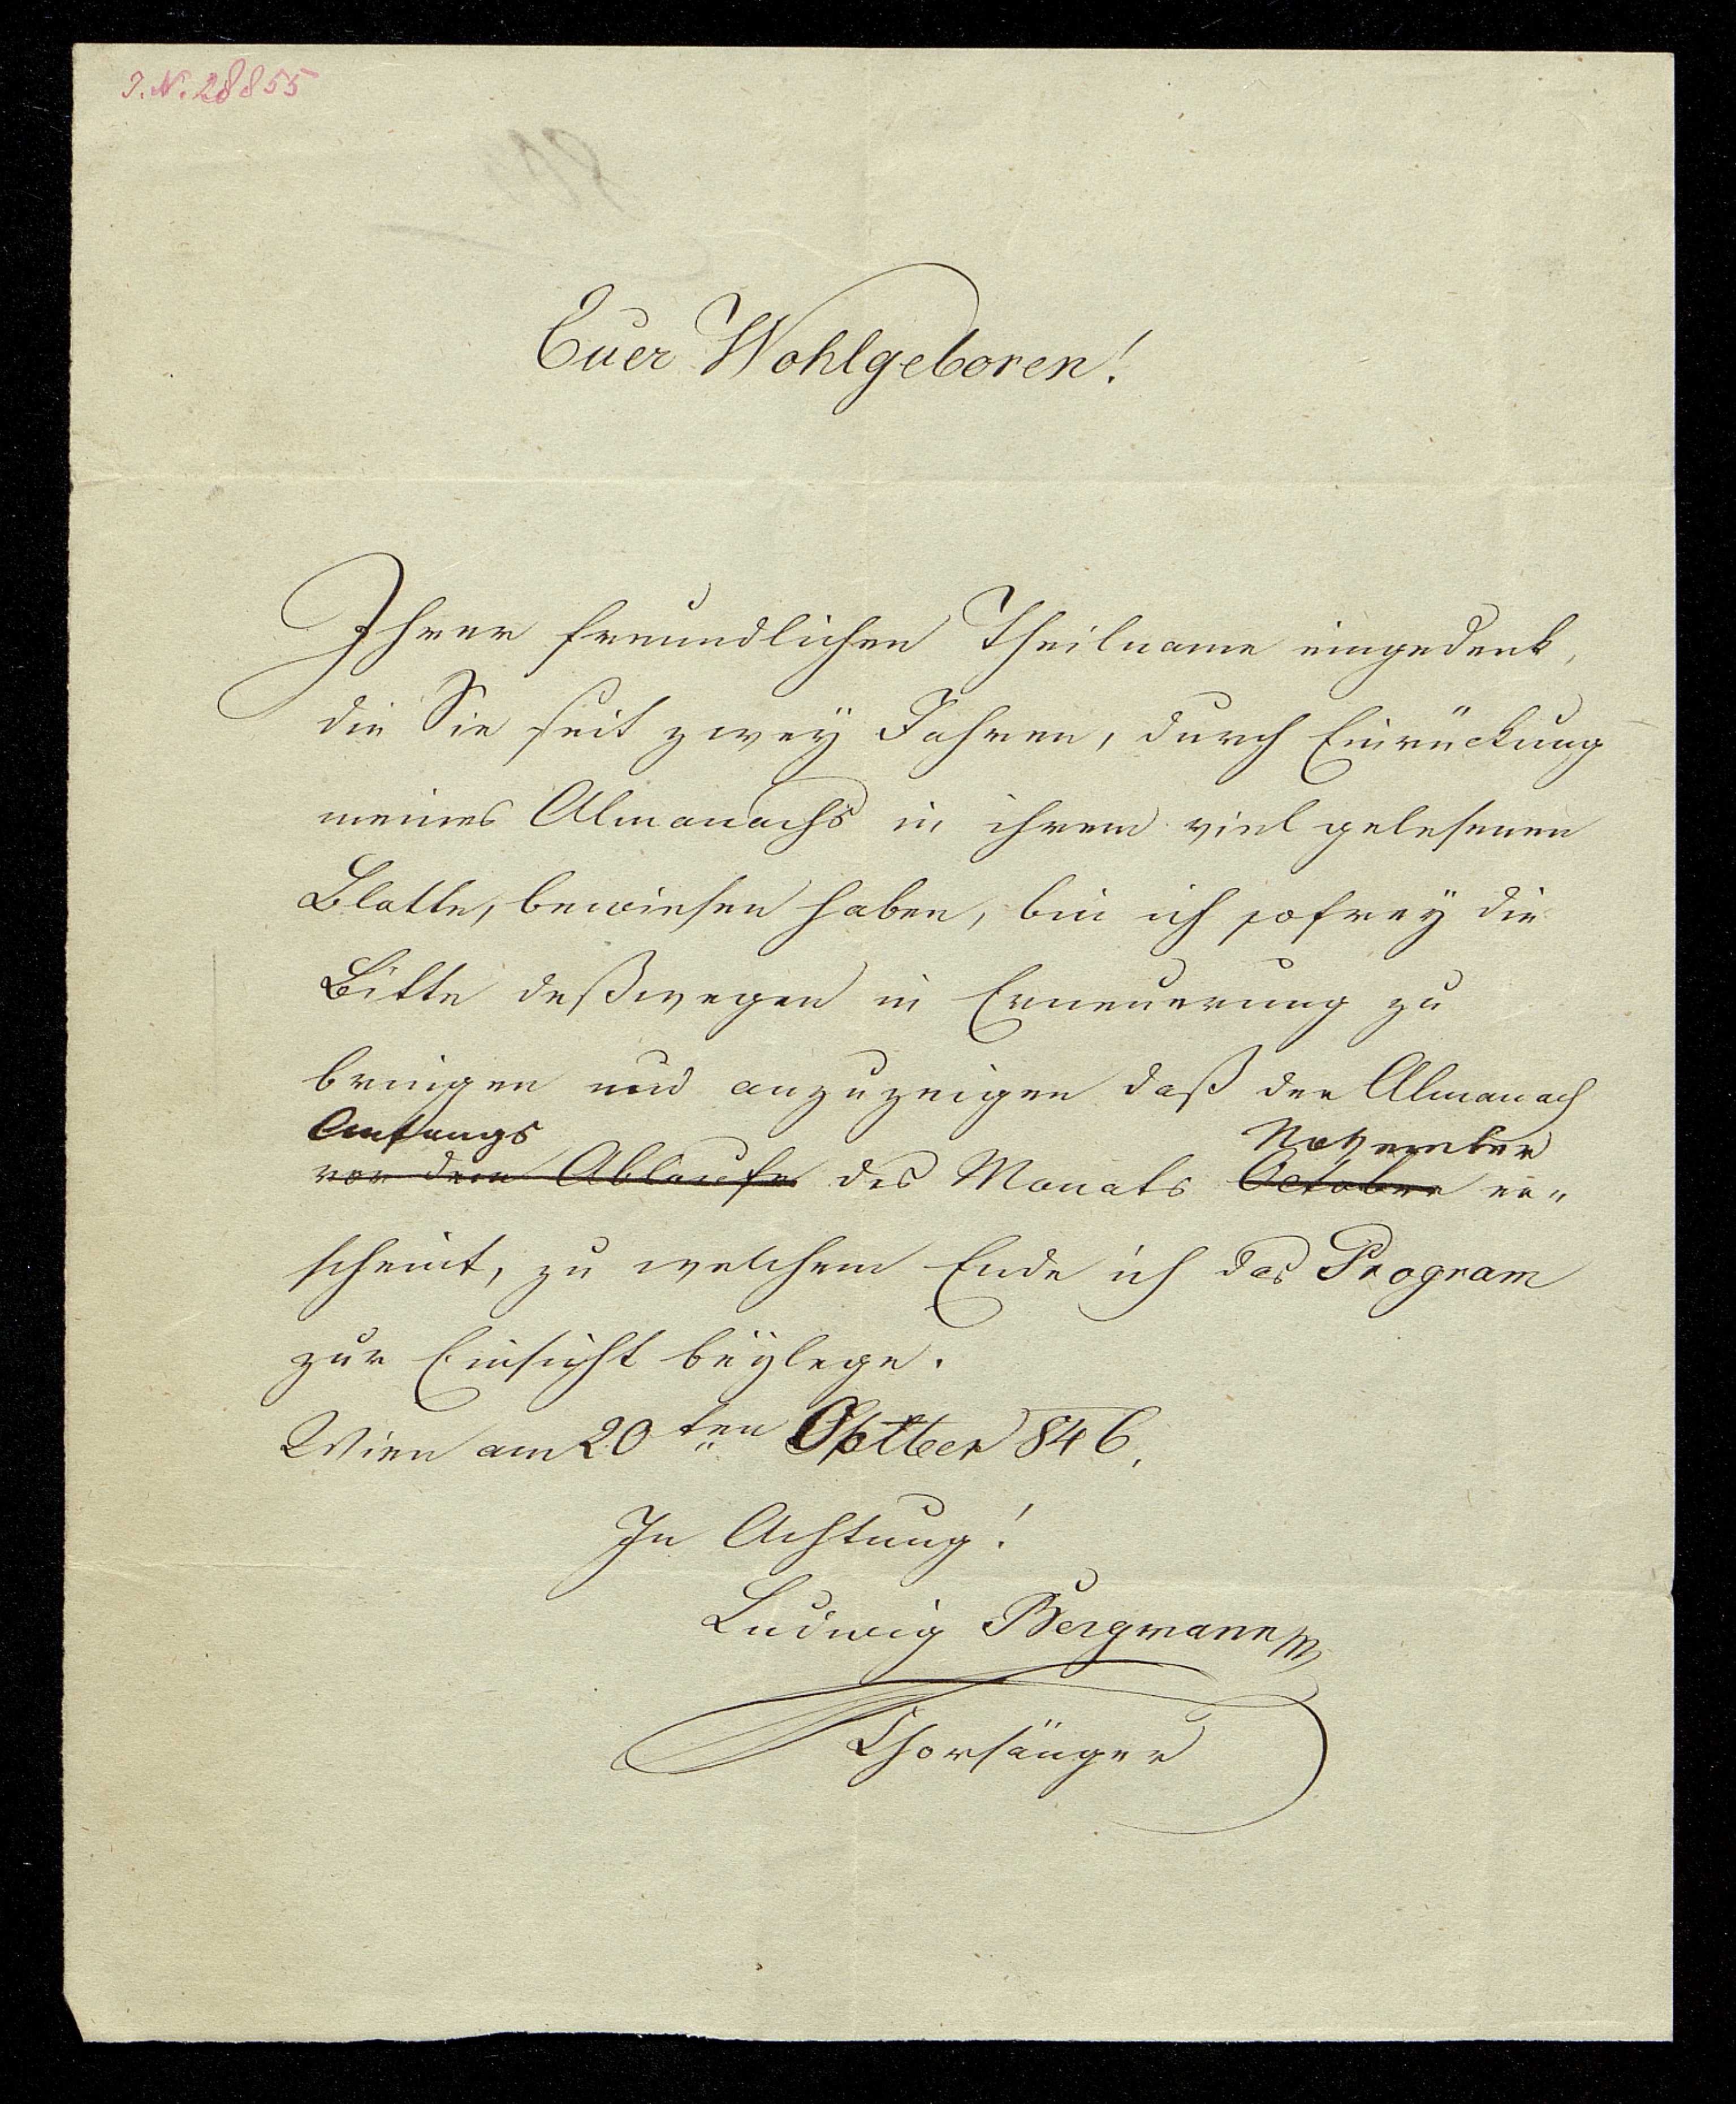 J.N. 28855
Euer Wohlgeboren!
Ihrer freundlichen Theilname eingedenk,
die Sie seit zwey Jahren, durch Einrückung
meines Almanachs in ihrem viel gelesenen
Blatte, bewiesen haben, bin ich so frey die
Bitte deßwegen in Erneuerung zu
bringen und anzuzeigen daß der Almanach
Anfangs November
vor dem Ablaufe des Monats October er„
scheint, zu welchem Ende ich das Program
zur Einsicht beÿlege.
Wien am 20ten 846.
In Achtung!
Ludwig Bergmann
Chorsänger